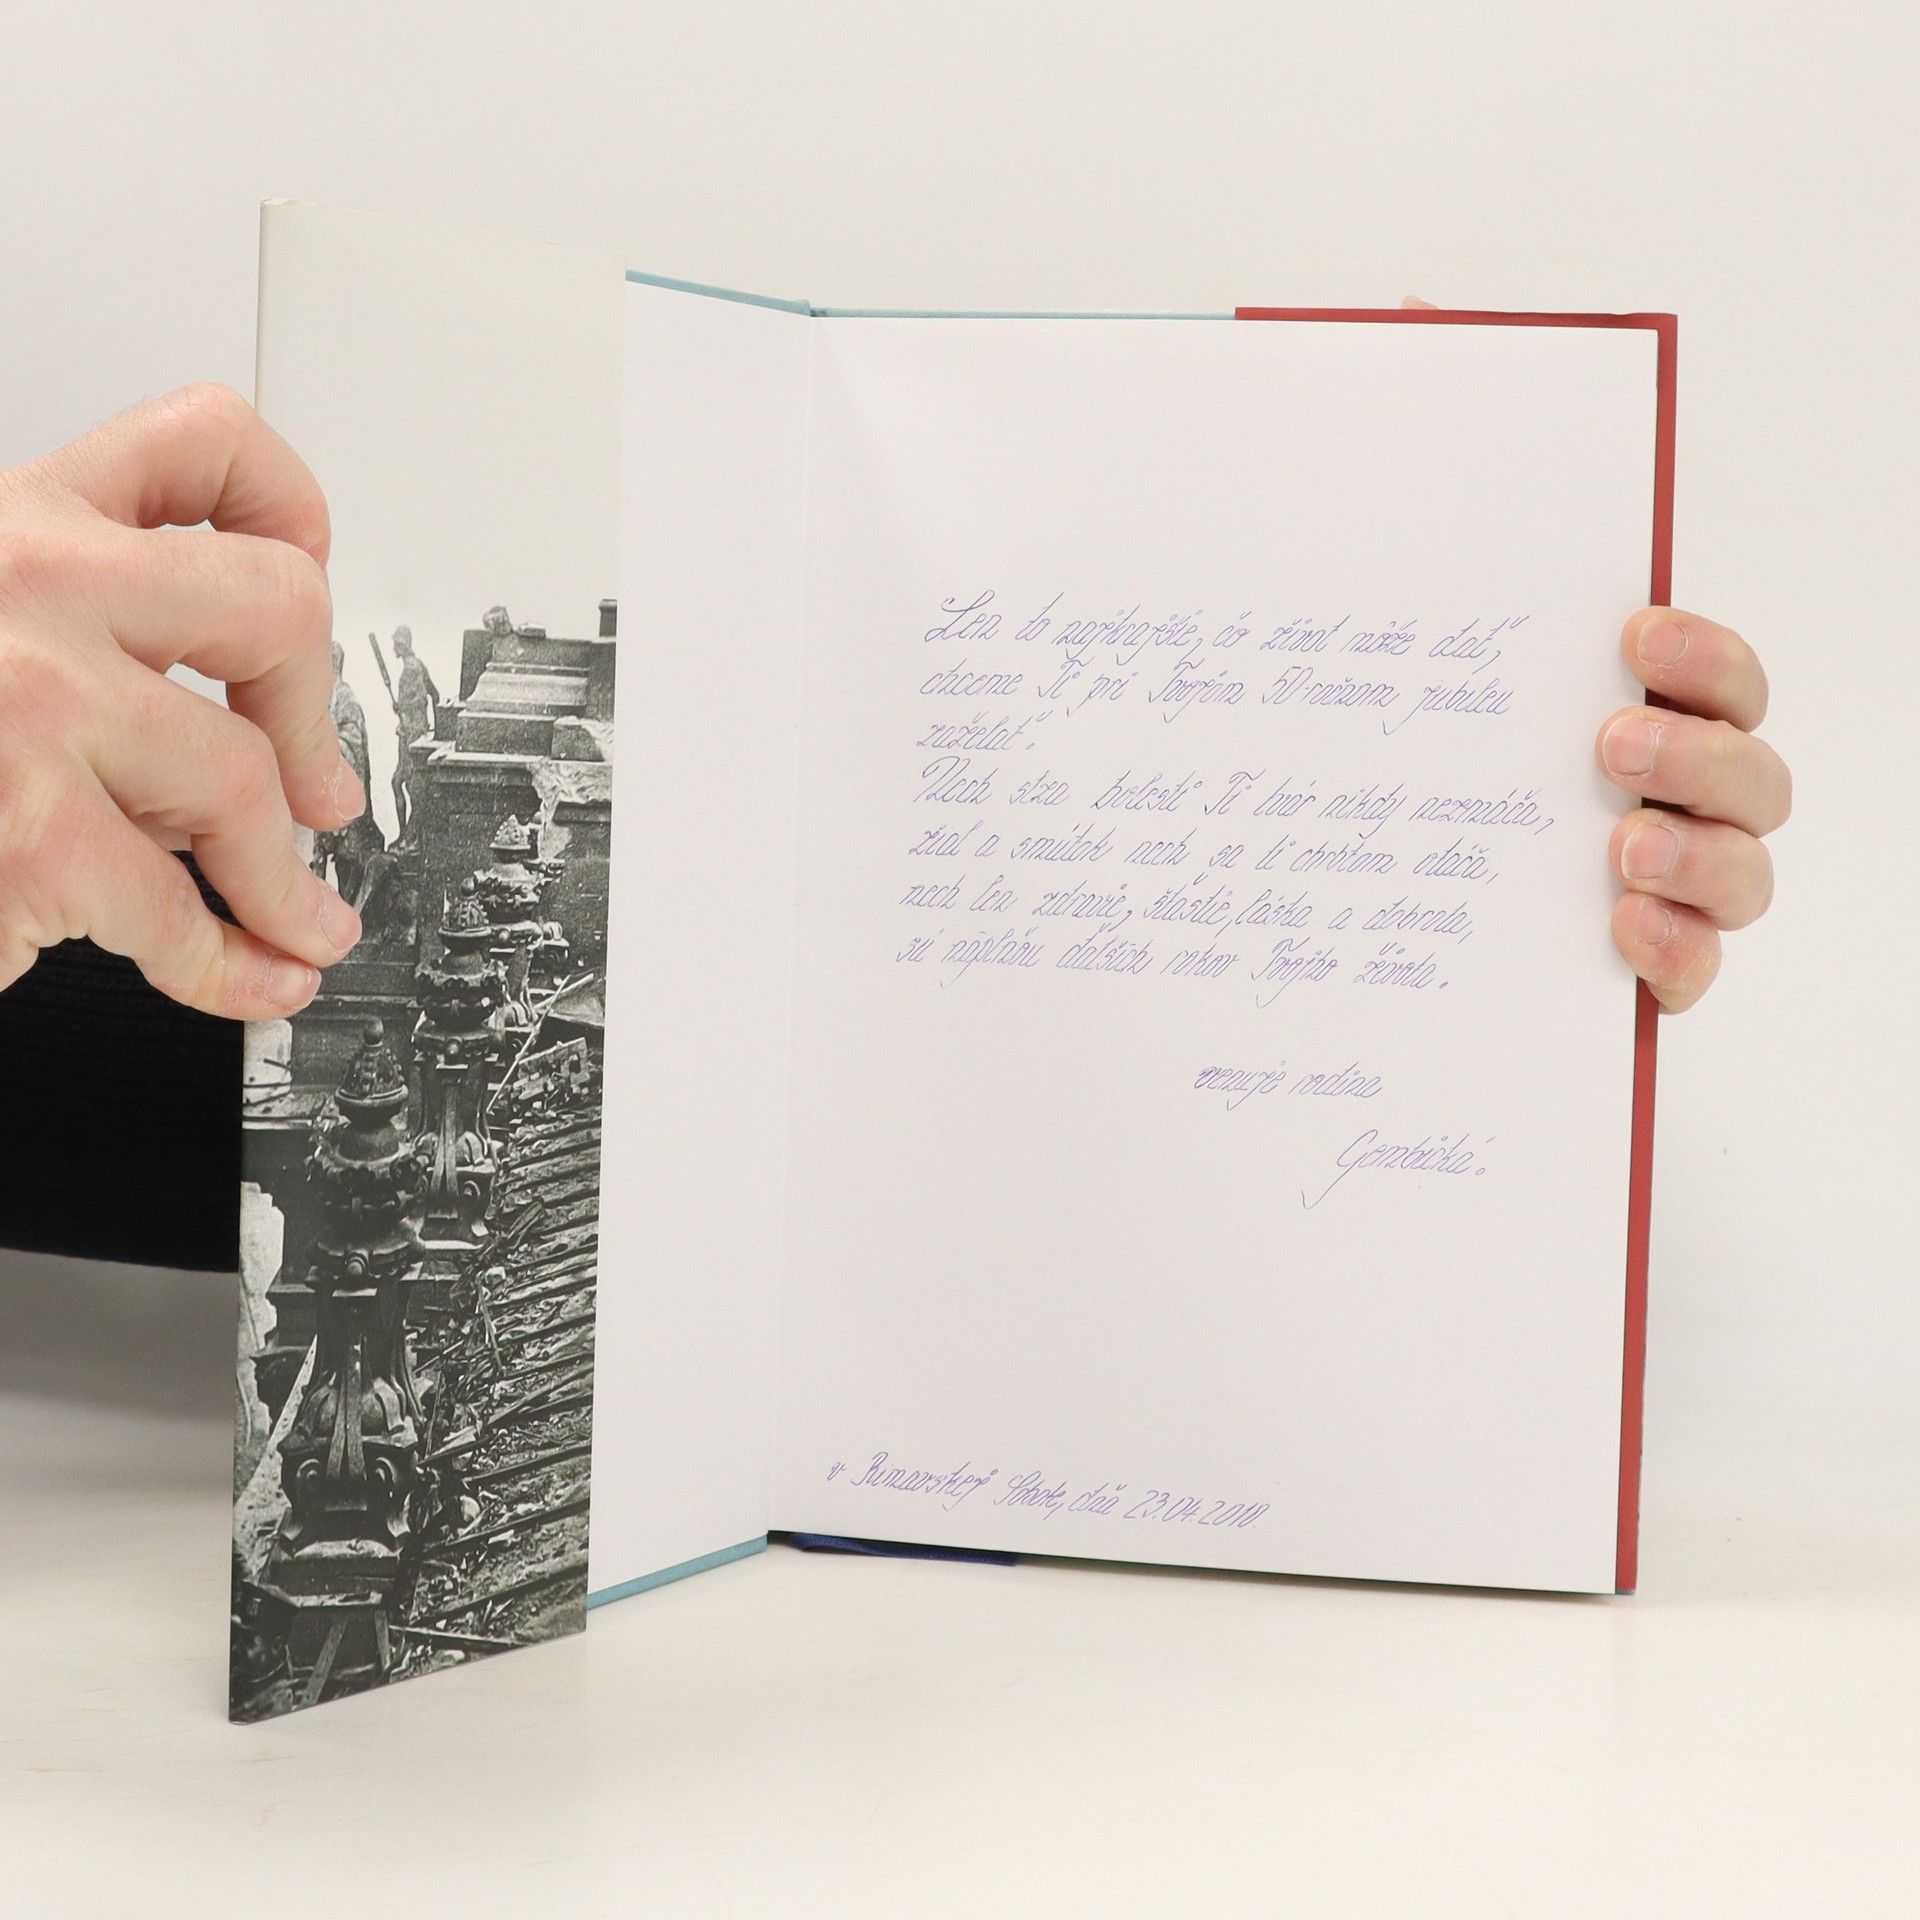 Len to najkrajšie, čo život môže dať,
chceme Ti pri Tvojom 50-ročnom jubileu
zaželať.
Nech slza bolesti Ti tvár nikdy nezmáča,
žiaľ a smútok nech sa ti chrbtom otáča,
nech len zdravie, šťastie, láska a dobrota,
sú náplňou ďalších rokov Tvojho života.
venuje rodina
Gombická.
v Rimavskej Sobote, dňa 23.04.2010.